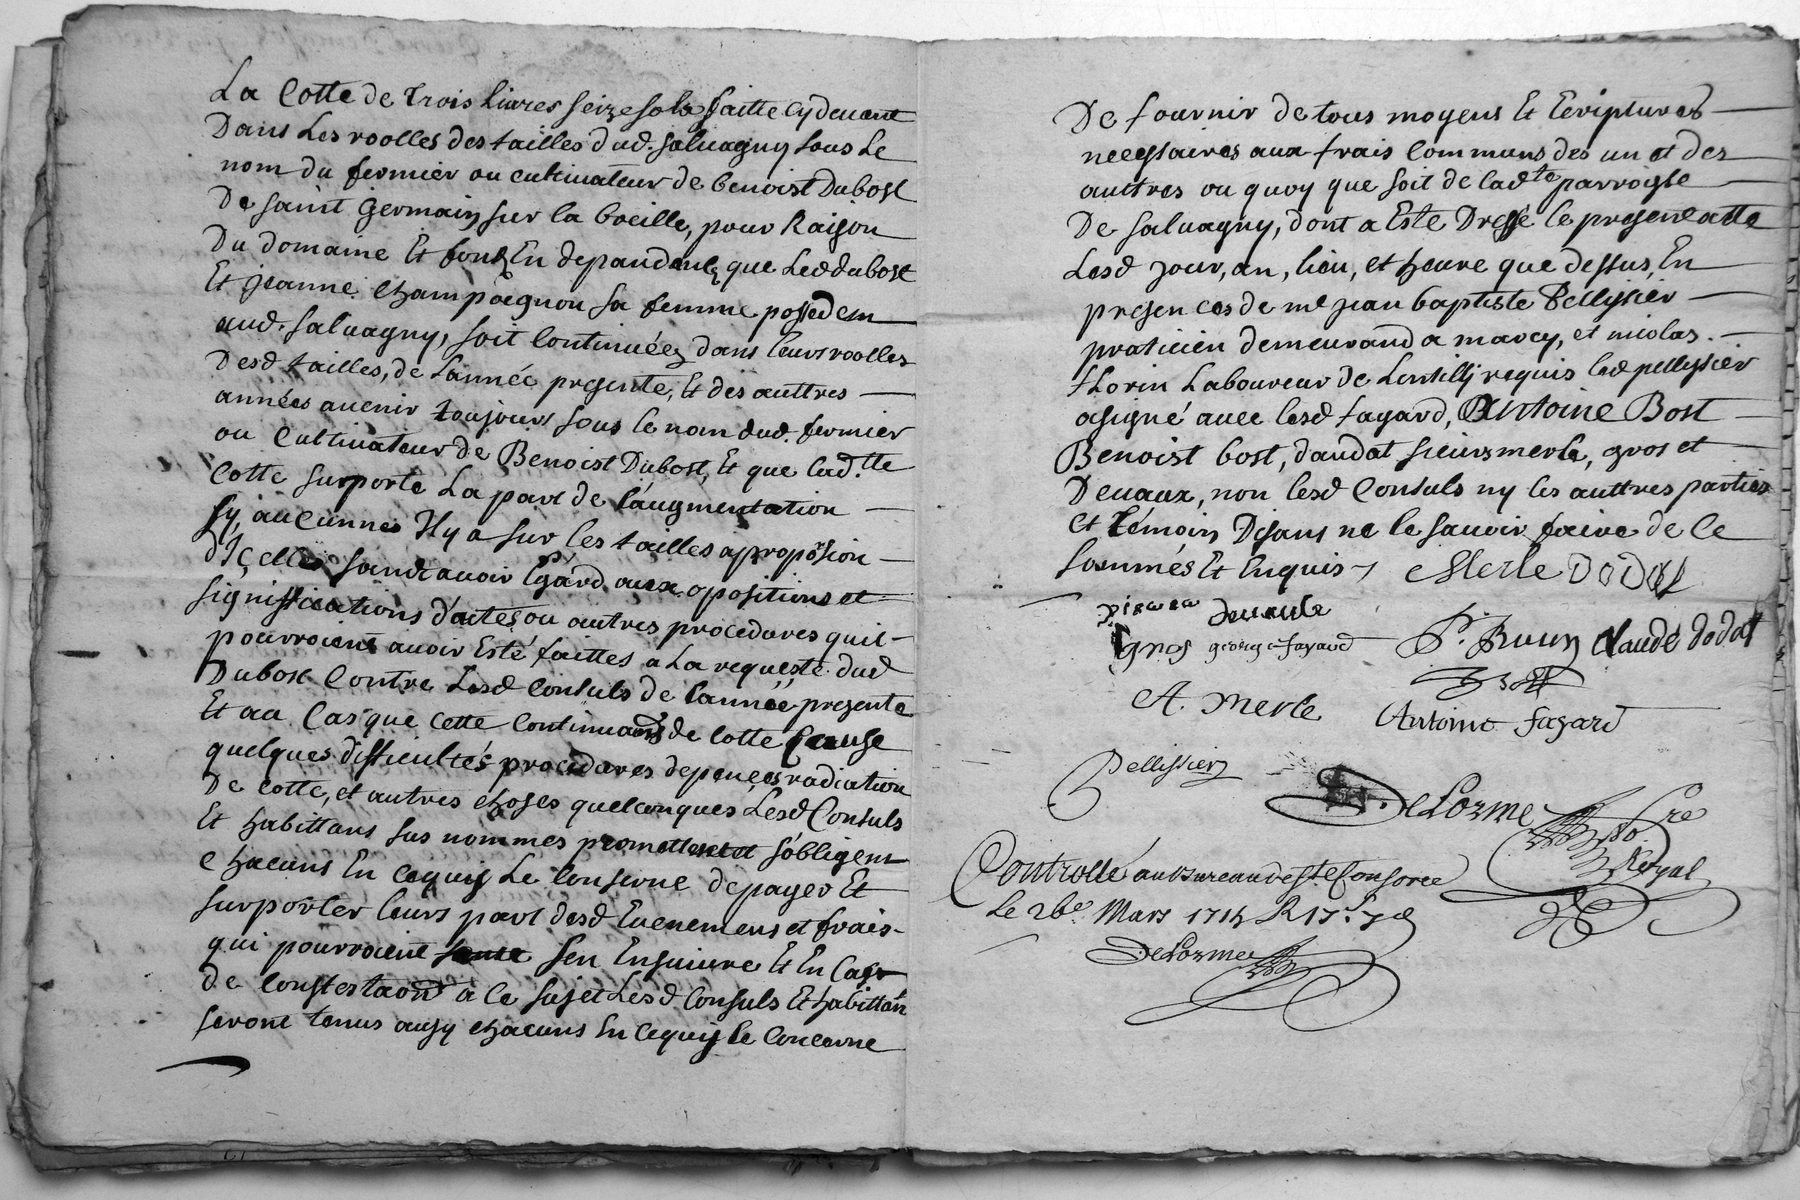 La Cotte de trois Livres seize sols faitte cy devant
Dans Les roolles des tailles dud. salvagny sous Le
nom du fermier ou cultivateur de benoist Dubost
De saint germain sur la breille, pour Raison
Du domaine Et fonds En dependents que Led dubost
Et jeanne champagnon sa femme possedent
aud. salvagny, soit Continuée dans leurs roolles
Desd tailles, de L'année presente, Et des auttres
années avenir toujours sous le nom dud. fermier
ou Cultivateur de Benoist Dubost, Et que lad.tte
Cotte surporte La part de l'augmentation
sy aucunnes Ily a sur les tailles a proportion
d'Icelles sans avoir Egard aux opositions et
significations d'actes ou autres procedures qui
pourroient avoir Esté faittes a La requeste dud
Dubost Contre Lesd Consuls de l'année presente
Et au Cas que cette Continuaon de Cotte Cause
quelques difficultés procedures depences radiation
De Cotte, et autres choses quelconques Lesd Consuls
Et habittans sus nommes promettent et s'obligent
chacuns En cequy Le Conserne de payer Et
surporter leurs part desd Evenemens et frais
qui pourroient s'en Ensuivre Et En Cas
de Constestaon a ce sujet Lesd Consuls Et habittans
seront tenus aussy chacuns En cequy le Concerne
De fournir de tous moyens Et Ecriptures
necessaires aux frais Communs des un et des
auttres ou quoy que soit de lad.te parroisse
De salvagny, dont a Esté Dressé le present acte
Lesd jour, an, lieu, et heure que dessus, En
presences de me jean baptiste Pellissier
praticien demeurand a marcy, et nicolas.
florin Laboureur de Lentilly requis led pellyssier
a signé avec lesd fayard, Antoine Bost
Benoist bost, daudat sieurs merle, gros et
Devaux, non lesd Consuls ny les auttres parties
et témoin Disans ne le savoir faire de Ce
sommés Et Enquis
Merle DODAT
Devaule
gros george fayard P. Brun Claude dodat
Bost
A. merle Antoine fayard
Pellissier
DeLorme
Nore
Royal
Controllé au Bureau de Ste Consorce
Le 26e Mars 1714 R 17s 7d
DeLorme